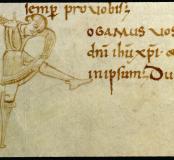 semper pro vobis:
ogamus vos
dnī ihū xpī · &
in ipsum: Du